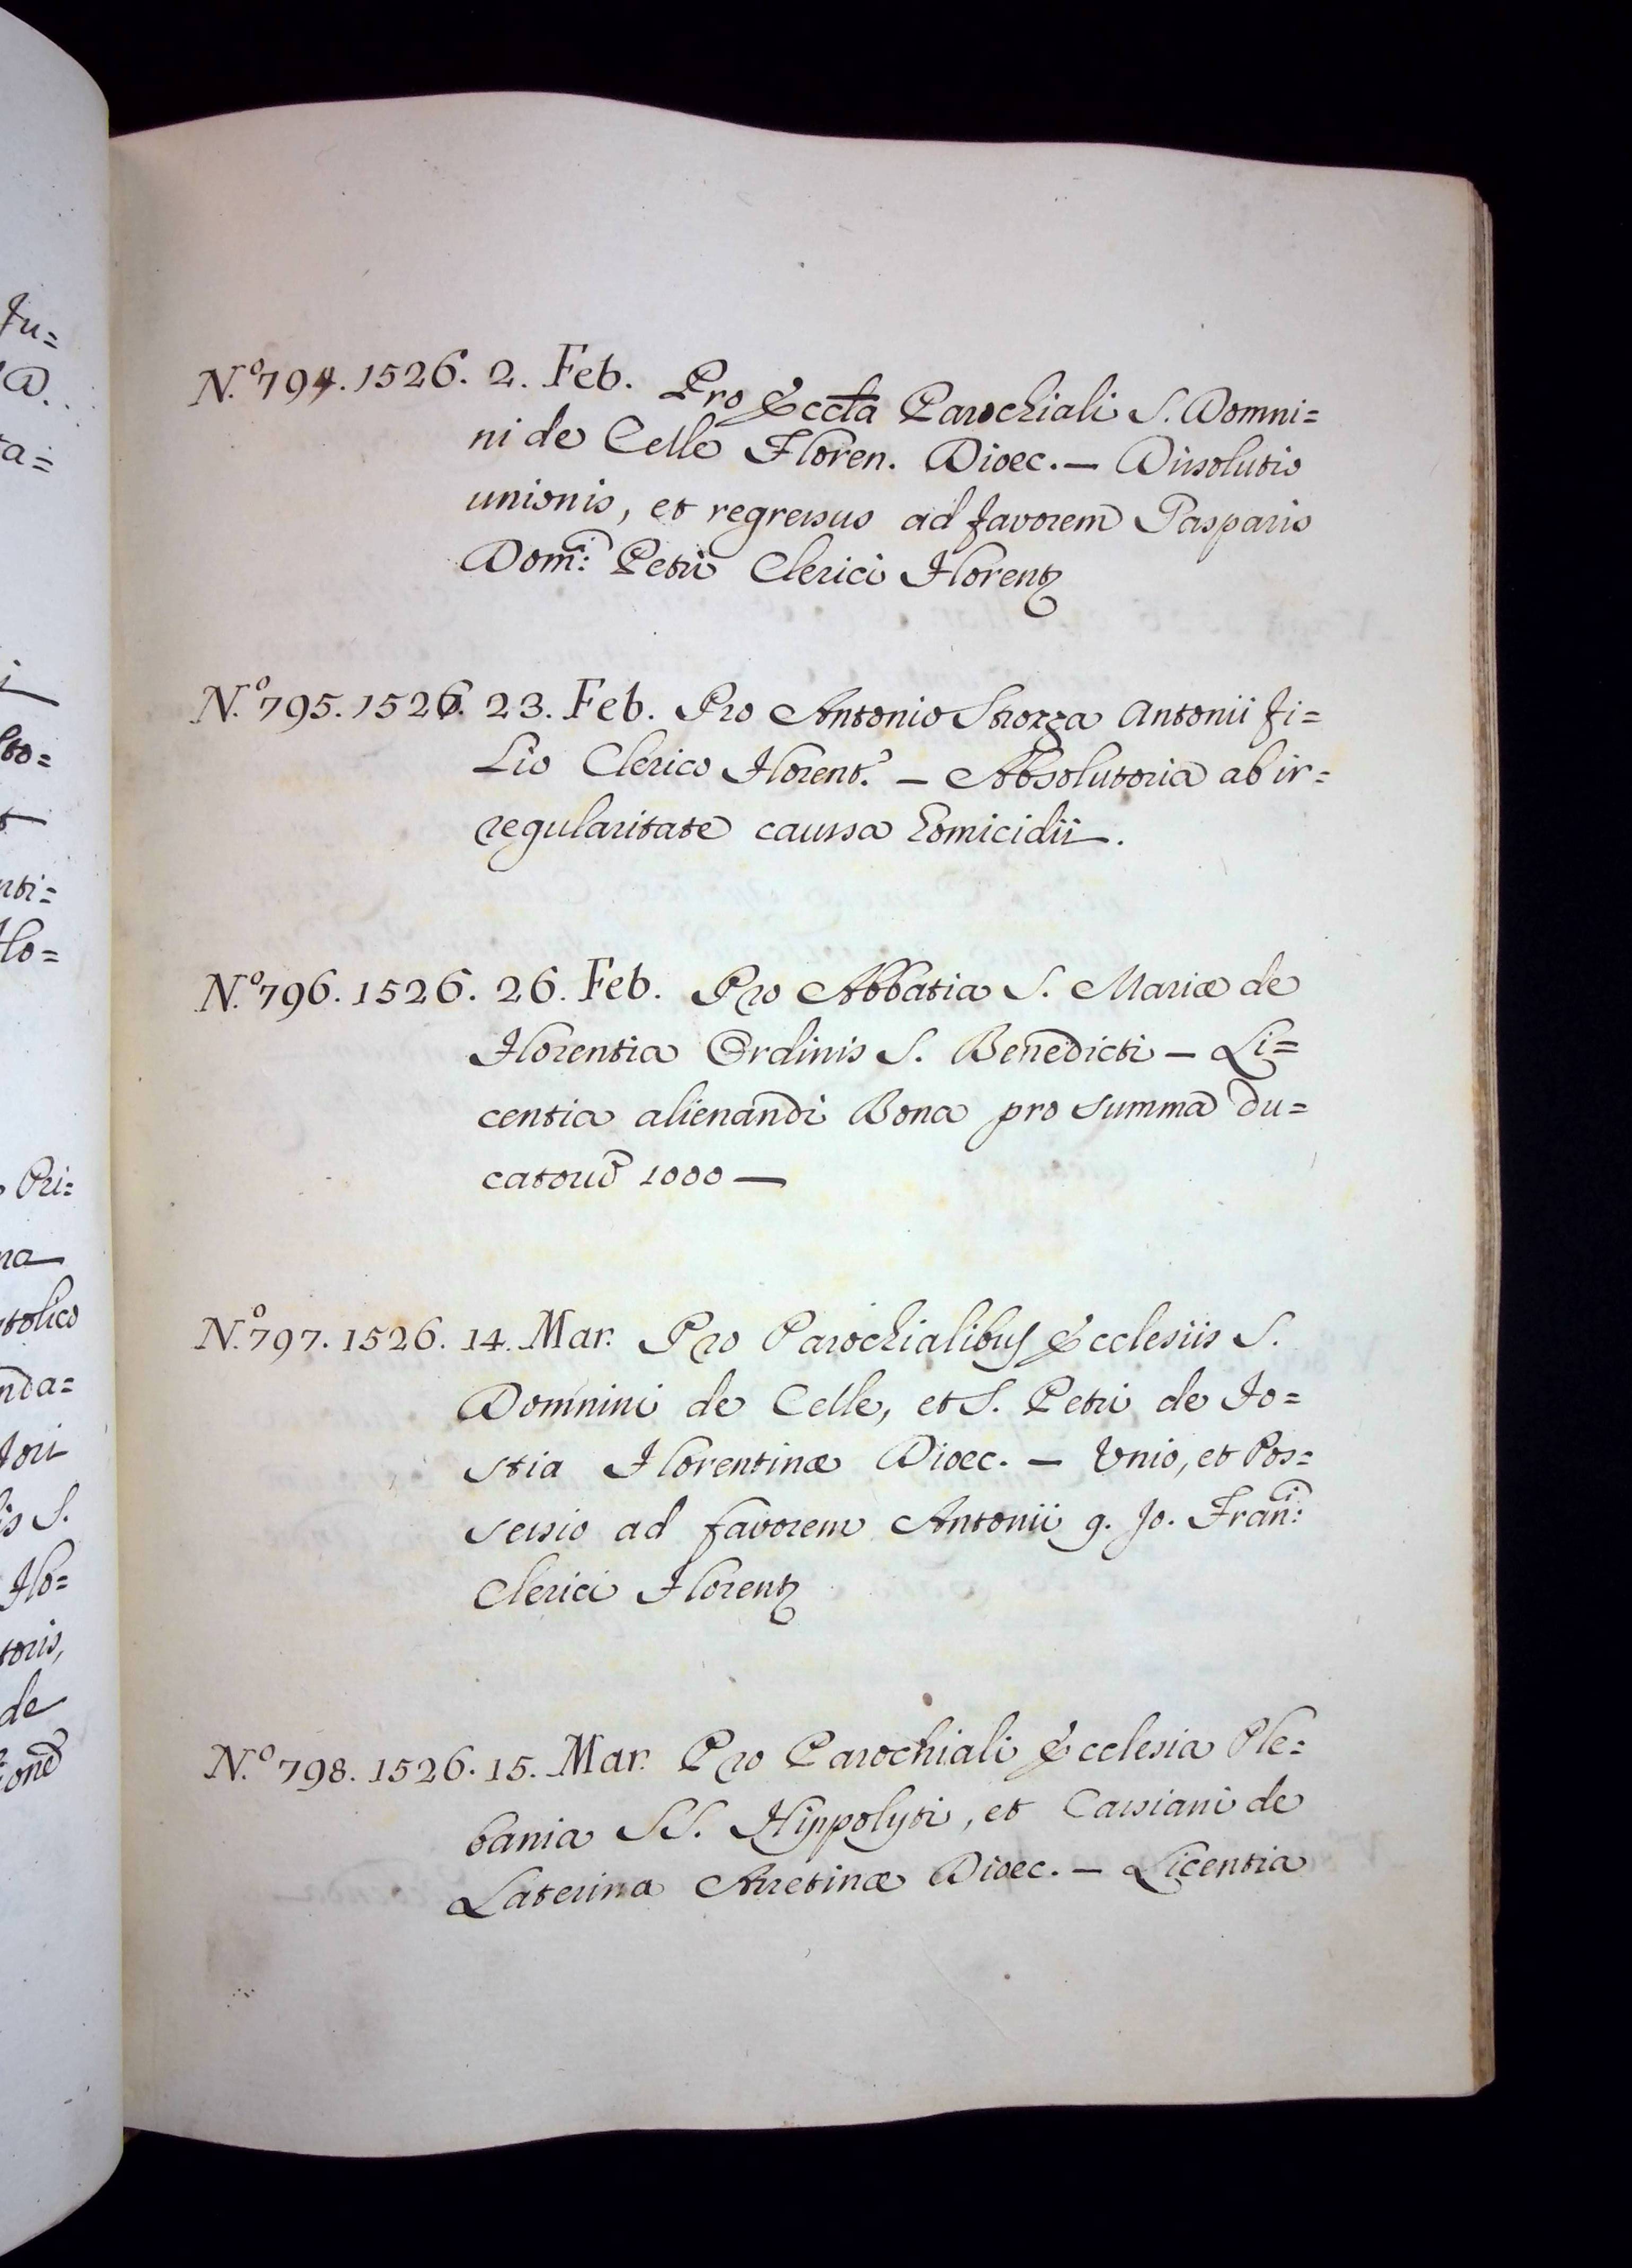 Ju=
D.
ta=
i
sto=
t
nti=
Flo=
Pri=
na
stolico
nda=
tori
is S.
Flo=
toris,
de
N.º 794. 1526. 2. Feb. Pro Eccła Parochiali S. Domni=
ni de Celle Floren. Dioec. — Dissolutio
unionis, et regressus ad favorem Gasparis
Dom.ci Petri Clerici Florentz
N.º 795. 1526. 23. Feb. Pro Antonio Storza Antonii fi=
lio Clerico Florent.º — Absolutoria ab ir=
regularitate caussa homicidii.
N.º 796. 1526. 26. Feb. Pro Abbatia S. Mariæ de
Florentia Ordinis S. Benedicti — Li=
centia alienandi Bona pro summa du=
catorum 1000 —
N.º 797. 1526. 14. Mar. Pro Parochialibus Ecclesiis S.
Domnini de Celle, et S. Petri de Fo=
stia Florentinæ Dioec. — Unio, et Pos=
sessio ad favorem Antonii q. Jo. Fran:ci
Clerici Florentz
N.º 798. 1526. 15. Mar. Pro Parochiali Ecclesia Ple=
bania SS. Hippolyti, et Cassiani de
Laterina Arretinæ Dioec. — Licentia